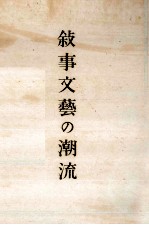 敍事文藝の潮流